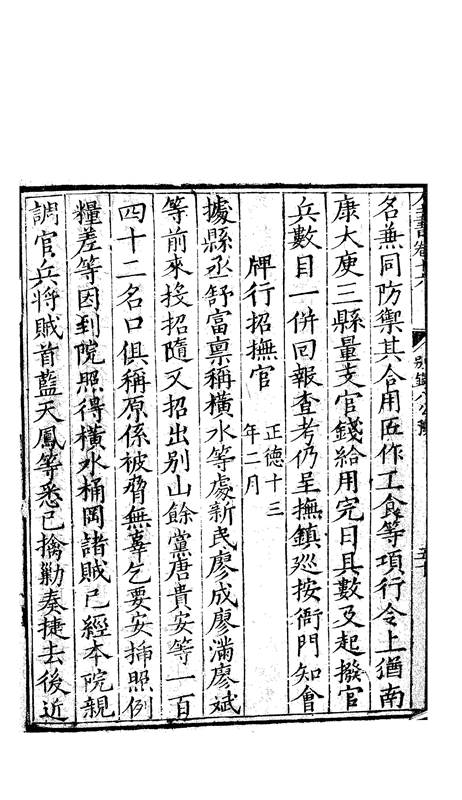 名兼同防禦其合用匠作工食等項行令上猶南
康大庾三縣量支官錢給用完日具數及起撥官
兵數目一併回報查考仍呈撫鎮巡按衙門知會
牌行招撫官 正德十三年二月
據縣丞舒富稟稱橫水等處新民廖成廖滿廖斌
等前來投招隨又招出別山餘黨唐貴安等一百
四十二名口俱稱原係被脅無辜乞要安揷照例
糧差等因到院照得橫水桶岡諸賊已經本院親
調官兵將賊首藍天鳳等悉已擒勦奏捷去後近